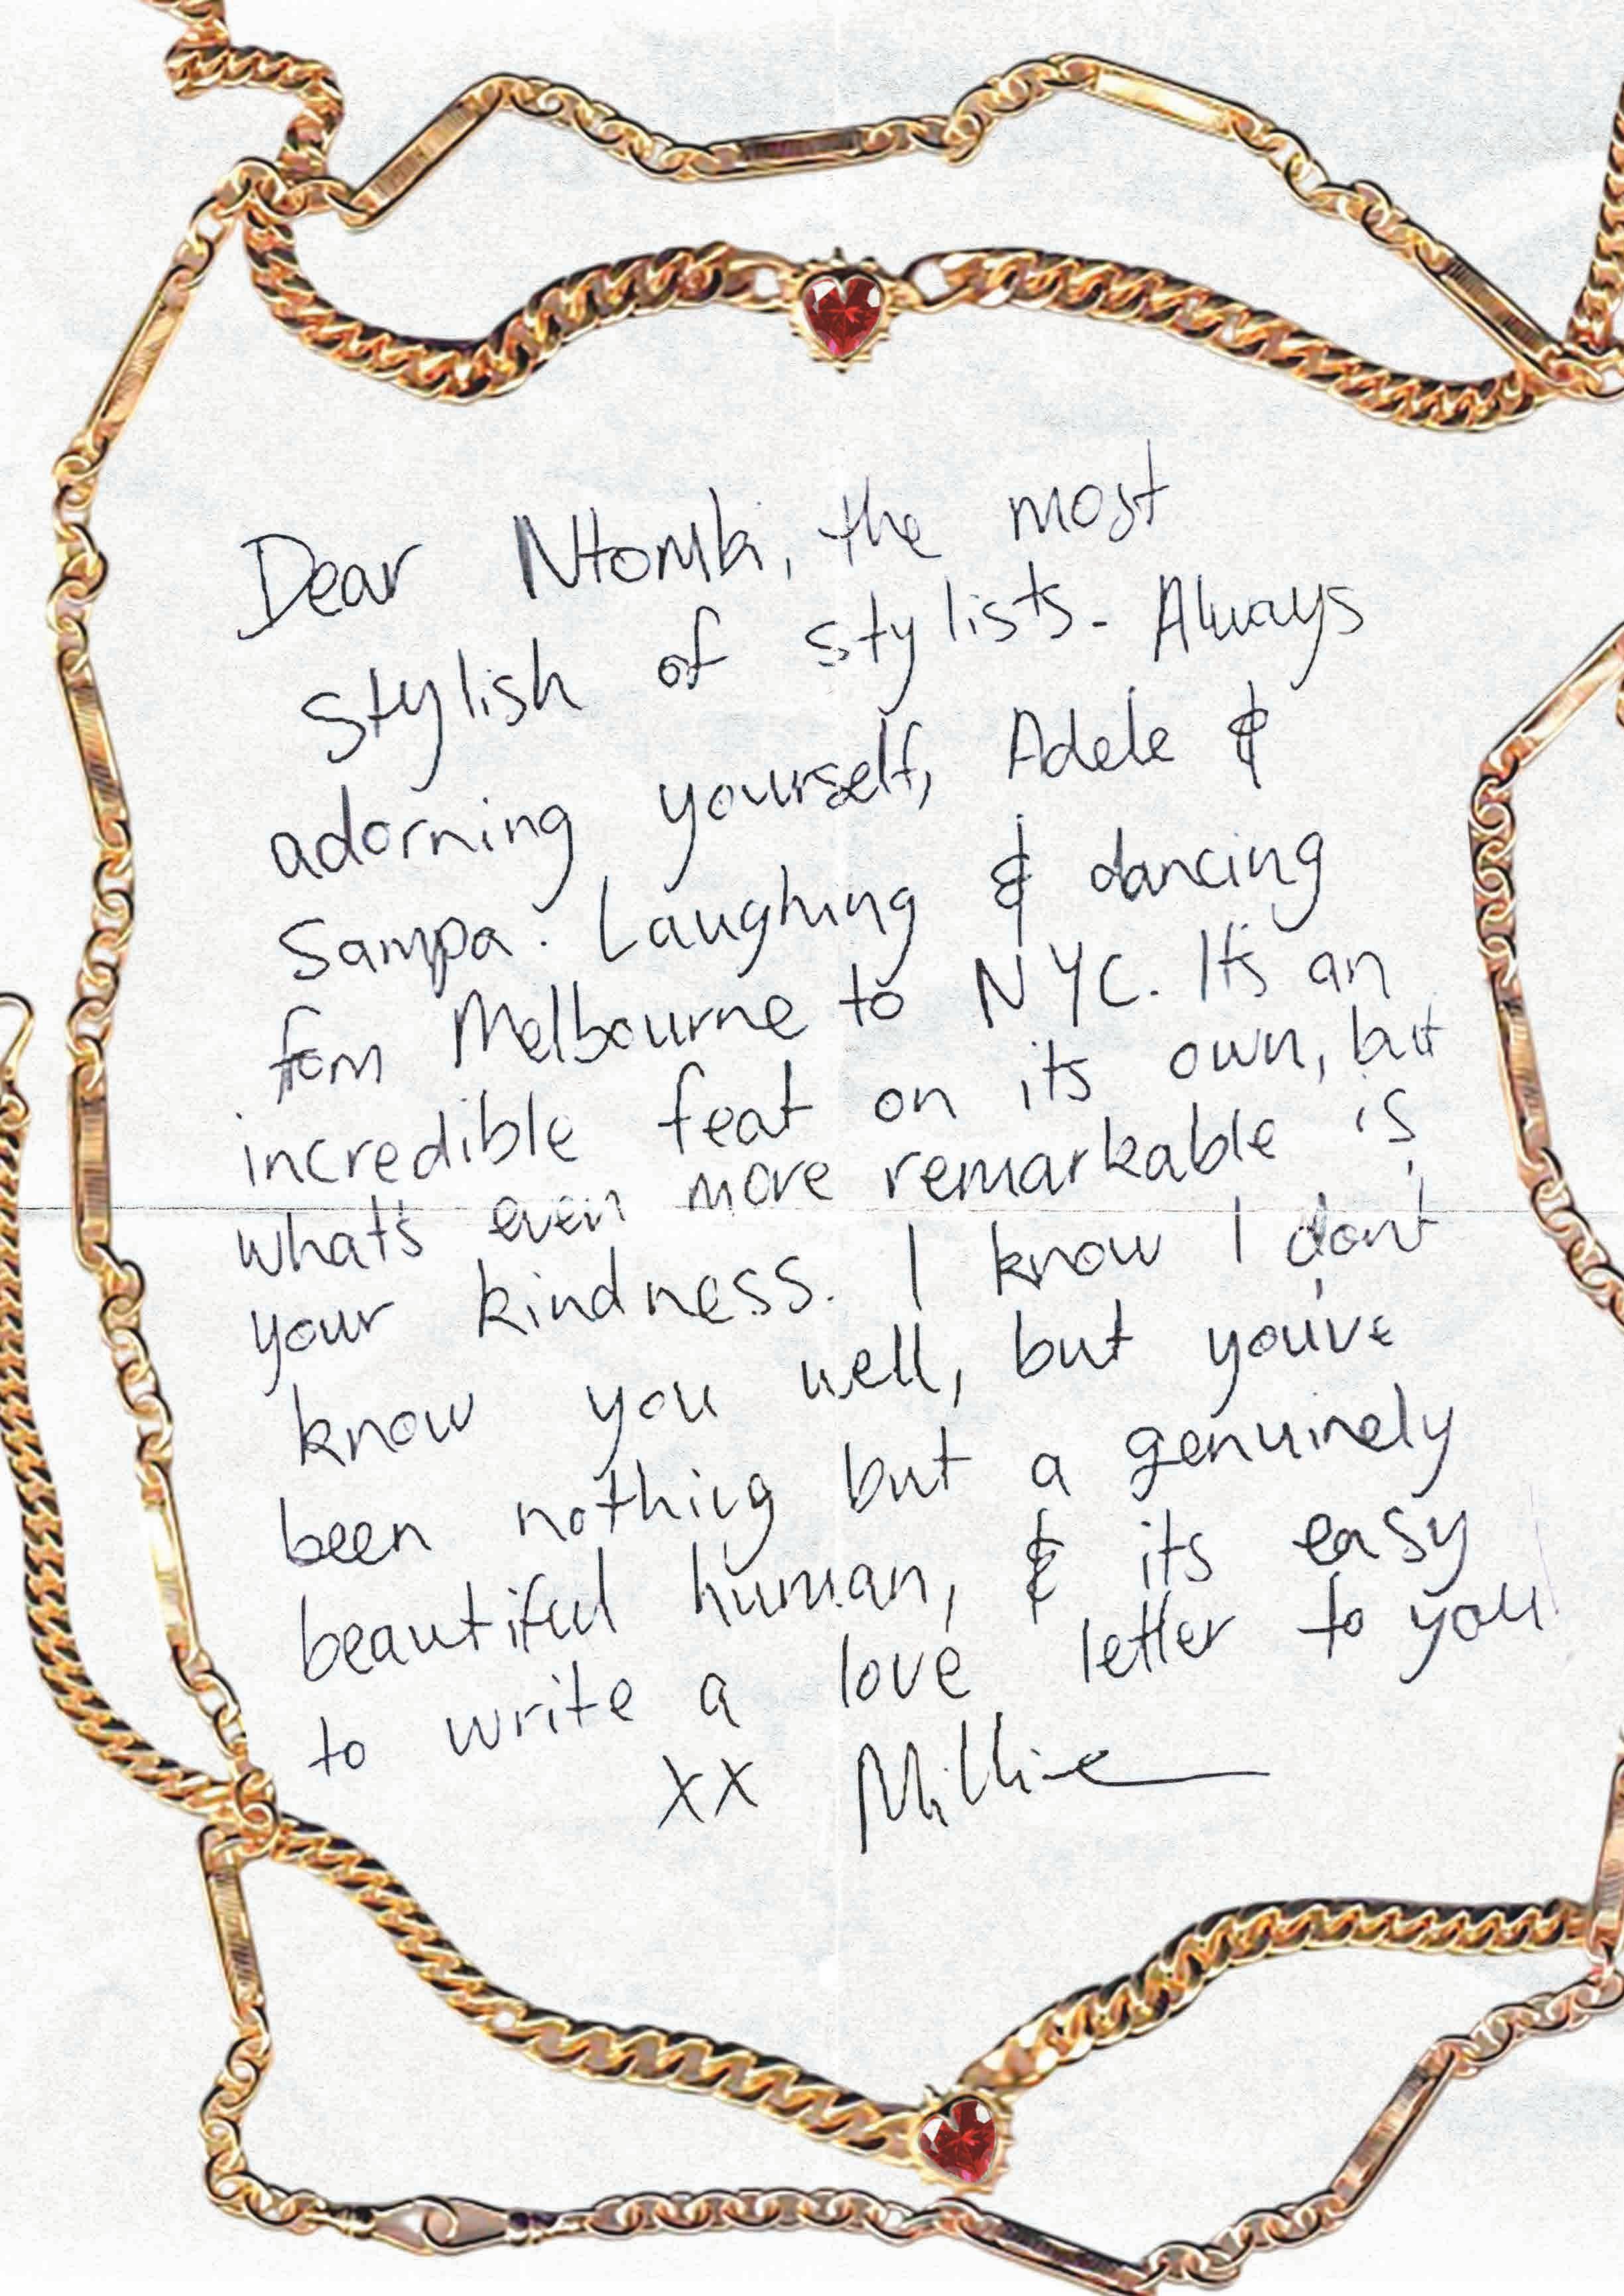 Dear Ntombi, the most
stylish of stylists. Always
adorning yourself, Adele &
Sampa. Laughing & dancing
from Melbourne to NYC. It's an
incredible feat on its own, but
what's even more remarkable is
your kindness. I know I don't
know you well, but you've
been nothing but a genuinely
beautiful human, & its easy
to write a love letter to you
xx Millie